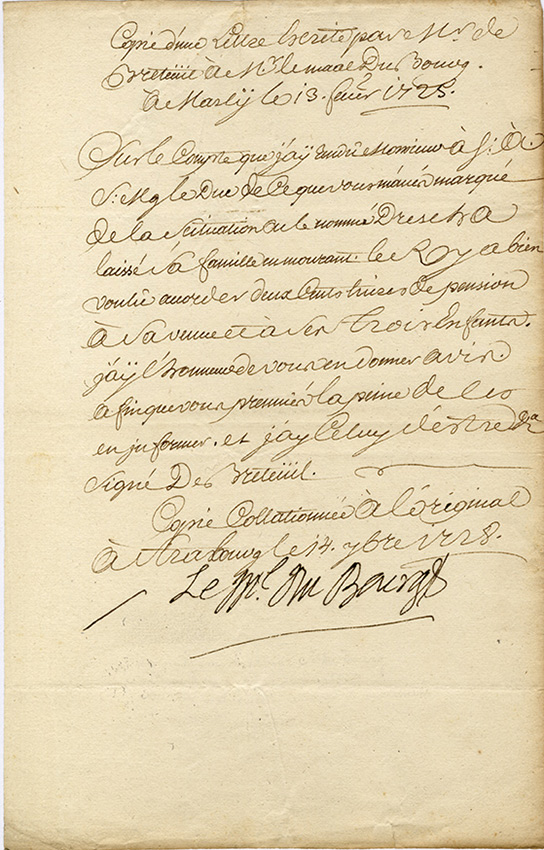 Copie d'une Lettre Ecritte par Mr. de
Breteüil à Mr. le maal Du Bourg.
à Marlÿ le 13. feuer 1725.
Sur le Compte que j'aÿ rendu Monsieur à S: A:
S: Mgr le Duc de Ce que vous m'aués marqué
de la Situation ou le nommé Dresch a
laissé Sa famille en mourant. le Roy a bien
voulu accorder deux Cents liures de pension
à Sa veuue et à Ses trois Enfants.
j'aÿ l'honneur de vous en donner avis.
afin que vous preniés la peine de les
en jnformer. et j'ay Celuy d'estre &a
Signé De Breteüil.
Copie Collationnée à l'original
à Strasbourg le 14. 9bre 1728.
Le Ml. Du Bourg